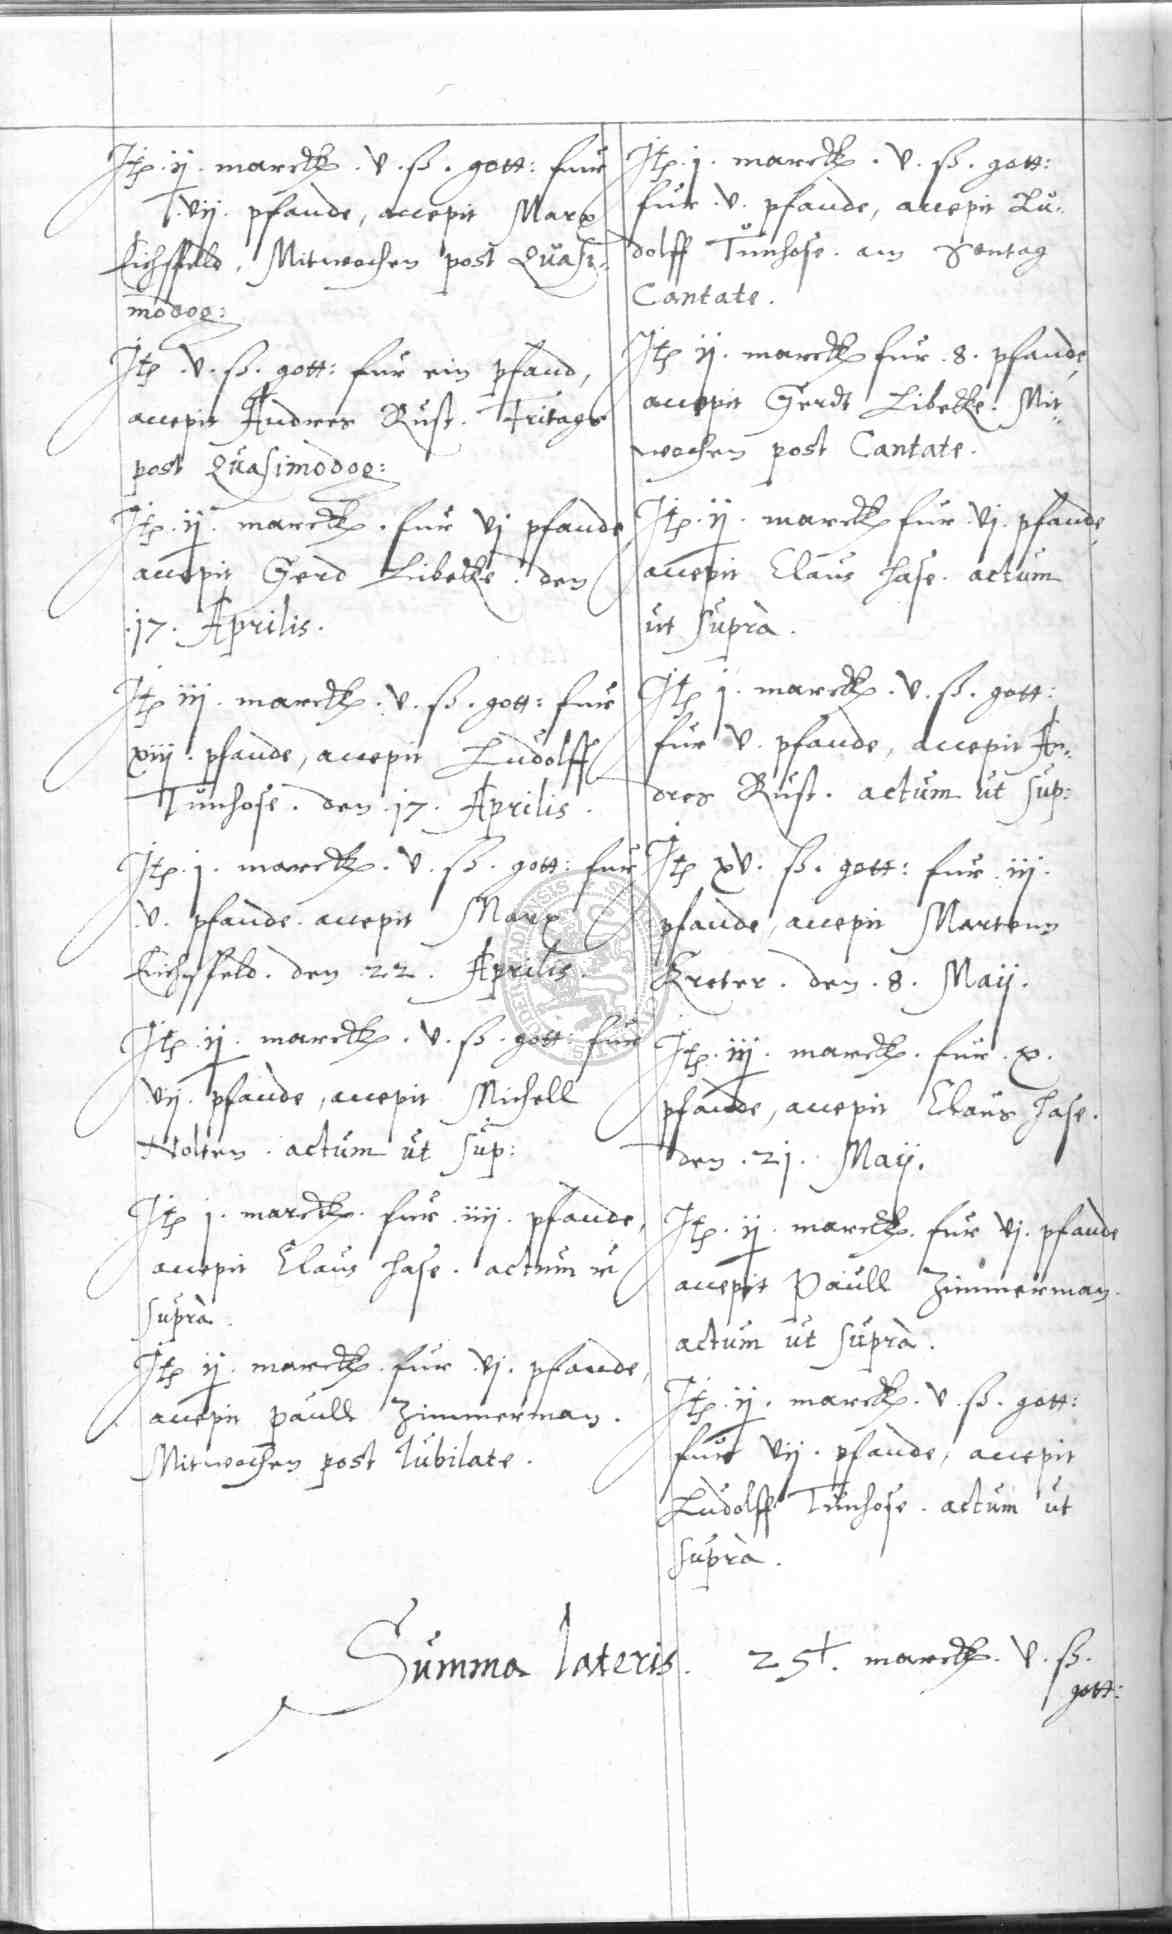 Itē .ij. marck . v . ß . gott: fur
.vij. pfande, accepit Marx
Eichsfeld, Mitwochen post Quasi-
modog:
Itē .v. ß. gott: fur ein pfand,
accepit Andres Rust. Fritags
post Quasimodog:
Itē .ij. marck . fur vj pfande
accepit Gerd Libecke . den
.17. Aprilis.
Itē iij . marck . v . ß . gott: fur
xiij . pfande, accepit Ludolff
Tunhose . den .17. Aprilis .
Itē .j. marck . v . ß . gott: fur
.v. pfande . accepit Marx
Eichsfeld . den .22. Aprilis .
Itē .ij. marck . v . ß . gott: fur
vij. pfande, accepit Michell
Nolten . actum ut sup:
Itē j. marck. fur .iiij. pfande,
accepit Claus Hase . actum ut
supra .
Itē ij. marck . fur .vj. pfande,
accepit Paull Zimmerman .
Mitwochen post Iubilate .
Itē .j. marck . v . ß . gott:
fur .v. pfande, accepit Lu-
dolff Tunhose . am Sontag
Cantate .
Itē ij. marck fur .8. pfande,
accepit Gerdt Libecke . Mit-
wochen post Cantate .
Itē .ij. marck fur .vj. pfande,
accepit Claus Hase . actum
ut supra .
Itē j. marck . v . ß . gott:
fur v. pfande, accepit An-
dres Rust . actum ut sup:
Itē xv. ß. gott: fur .iij.
pfande, accepit Martenn
Kreter . den .8. Maij .
Itē .iij. marck . fur .x.
pfande, accepit Claus Hase .
den .21. Maij .
Itē .ij. marck . fur vj. pfande
accepit Paull Zimmerman .
actum ut supra .
Itē .ij. marck . v . ß . gott:
fur vij . pfande, accepit
Ludolff Tunhose . actum ut
supra .
Summa lateris . 25ƚ. marck . v . ß .
gott: